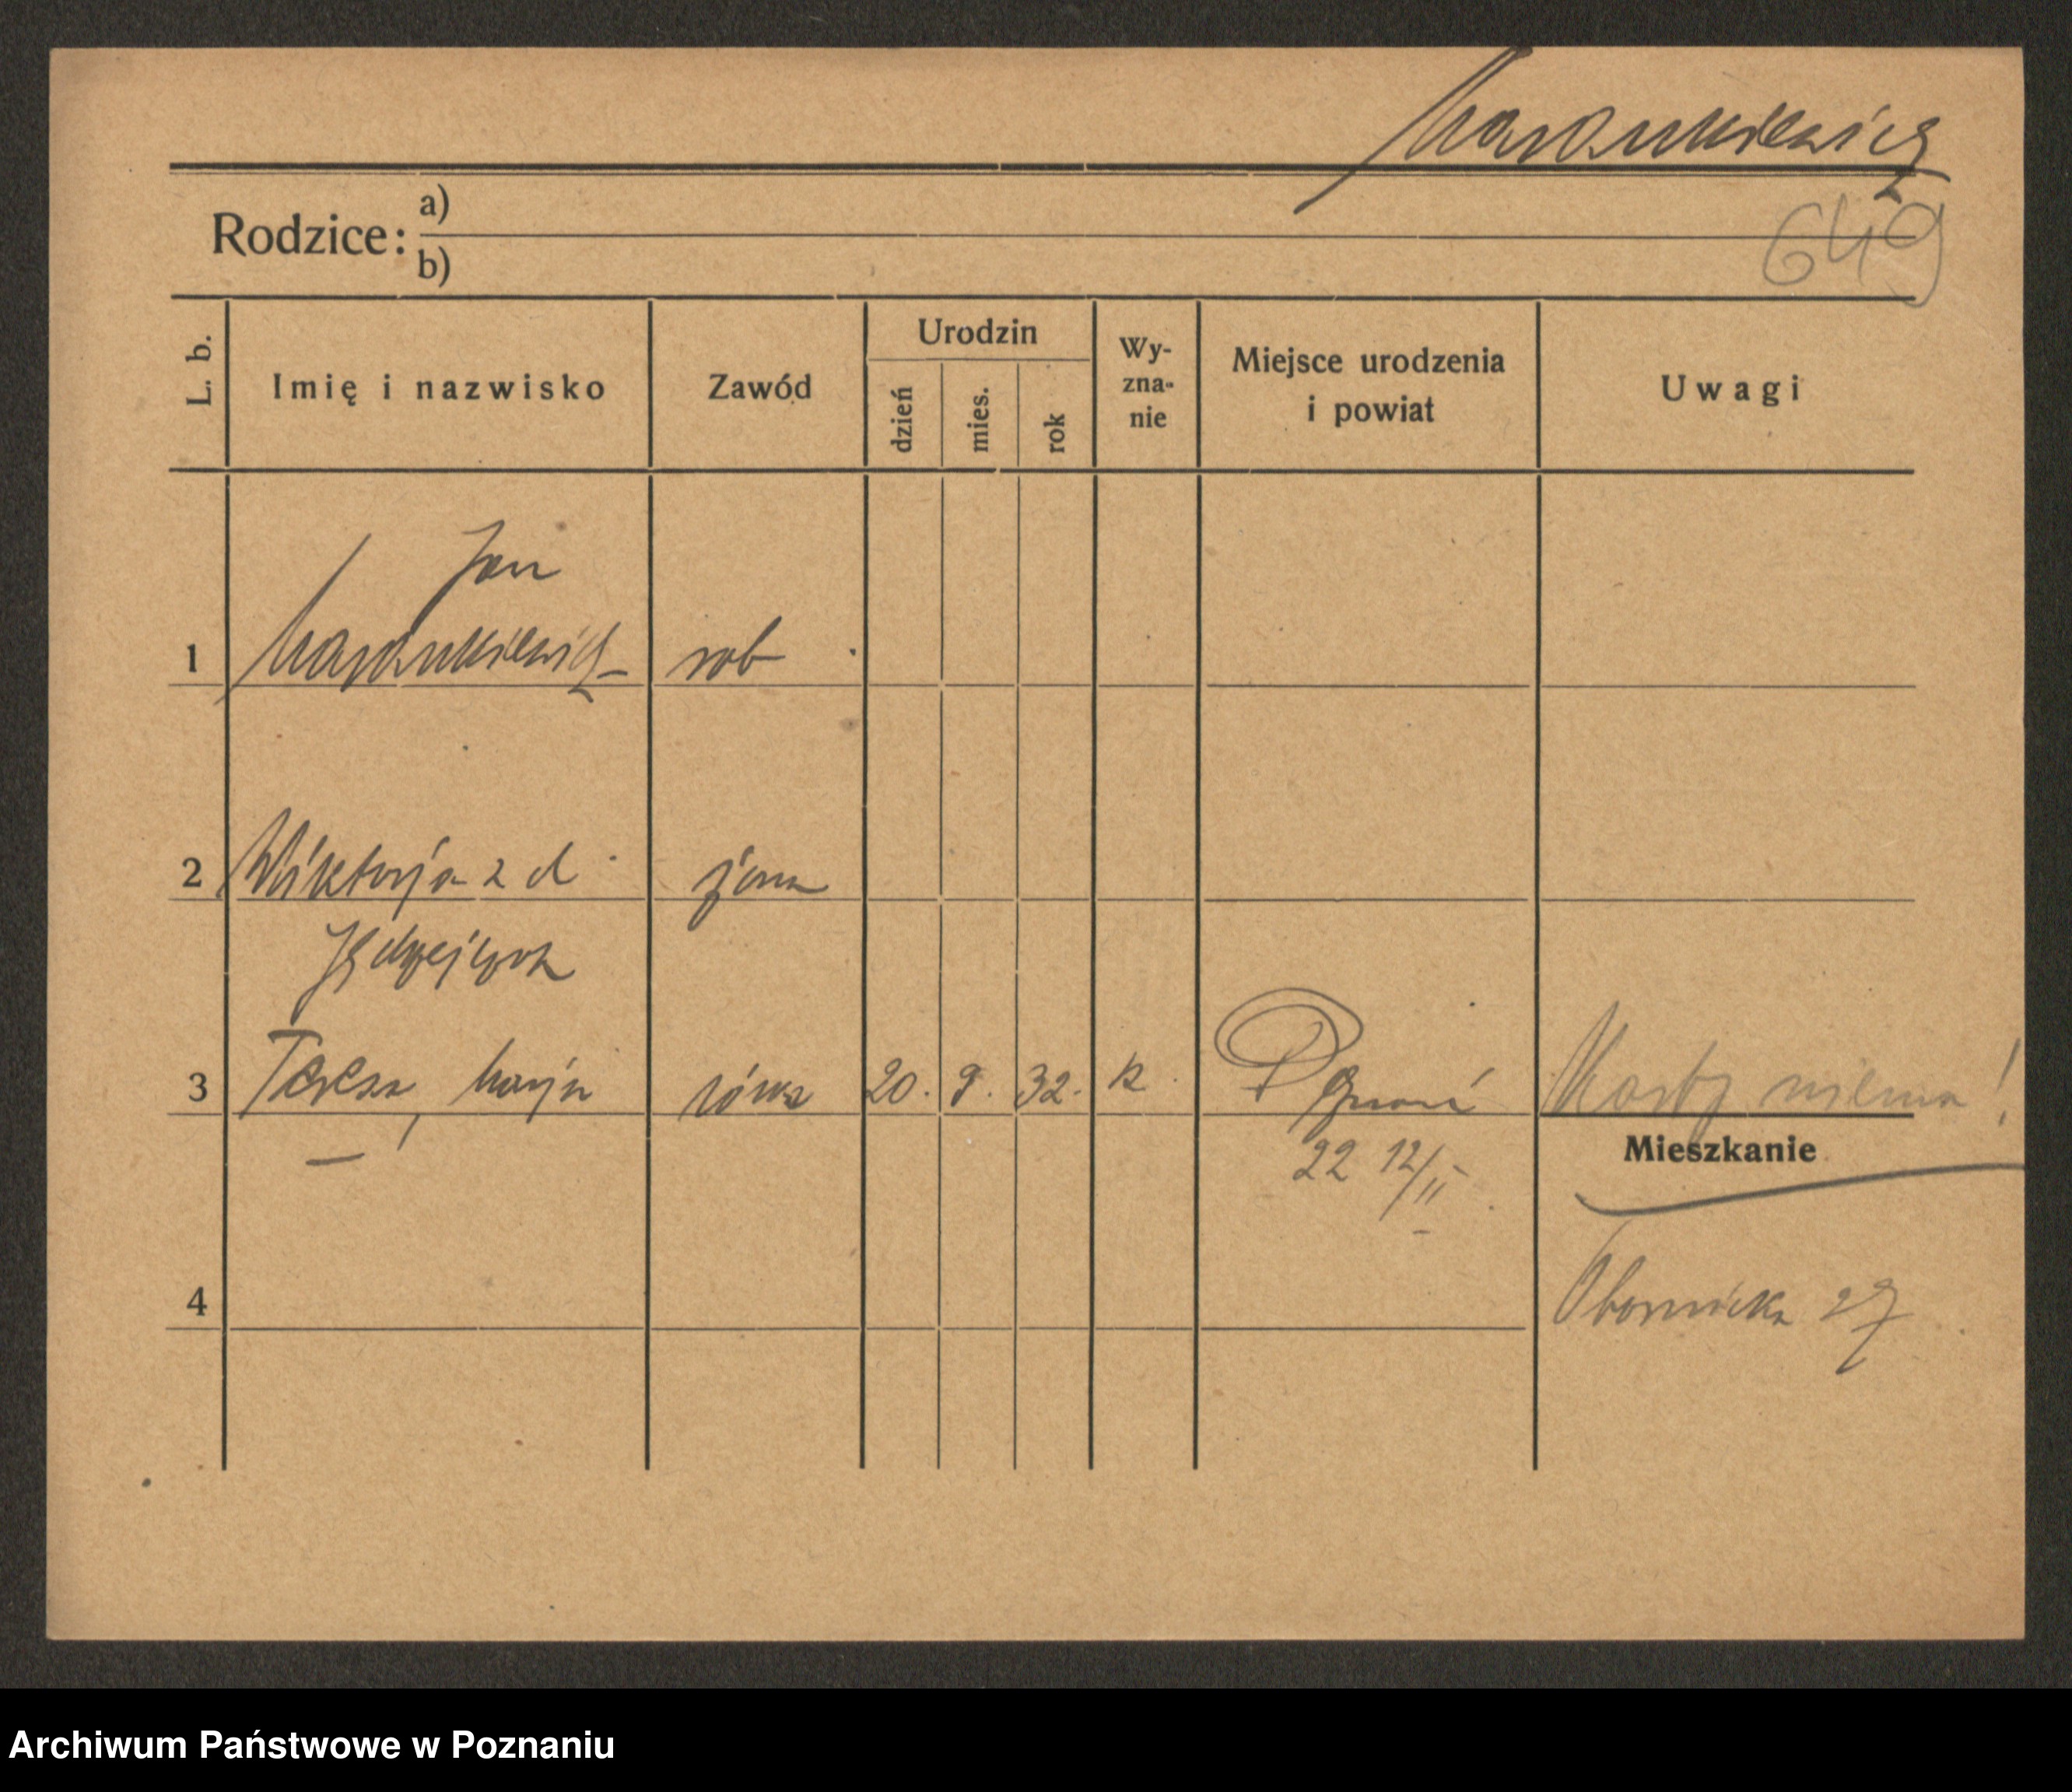 Marszukiewicz
649
Rodzice:
a)
b)
L. b.
Imię i nazwisko
Zawód
Urodzin
dzień
mies.
rok
Wy-
zna-
nie
Miejsce urodzenia
i powiat
Uwagi
Jan
1 rob
2 Wiktorja z d żona
Jędrzejczak
3 Teresa, Marja córka 20. 9. 32. k Poznań Karty niema!
22 12/II
Mieszkanie
4 Obornicka 27
Archiwum Państwowe w Poznaniu